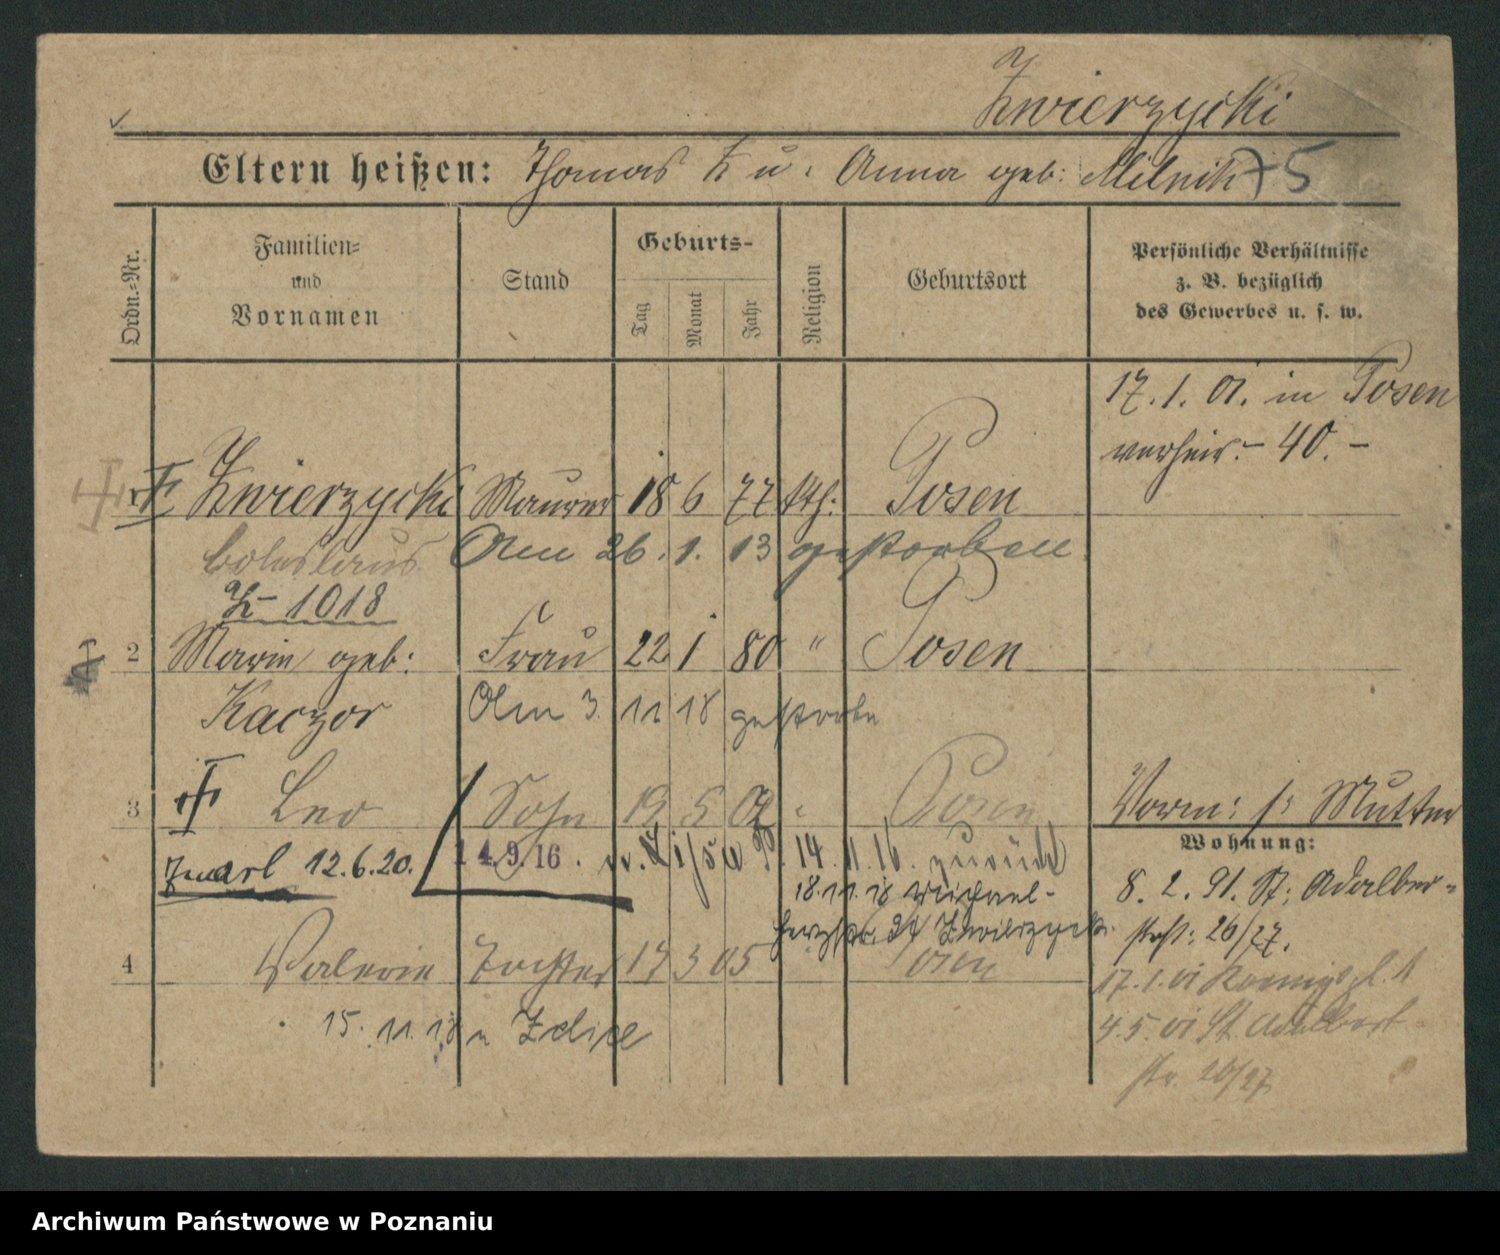 Zwierzycki
Eltern heißen: Thomas Z u. Anna geb: Milnik 75
Ordn.=Nr.
Familien=
und
Vornamen
Stand
Geburts-
Tag
Monat
Jahr
Religion
Geburtsort
Persönliche Verhältnisse
z. B. bezüglich
des Gewerbes u. s. w.
17. 1. 01. in Posen
verheir. – 40. –
Zwierzycki Maurer 18 6 77 kth: Posen
Boleslaus Am 26. 1. 13 gestorben.
Z – 1018
2 Marie geb: Frau 22 1 80 " Posen
Kaczor Am 3. 11 18 gestorben
3 Leo Sohn 19 5 02 " Posen
Vorm: s: Mutter
Zmarł 12.6.20. 14.9.16. 14.11.16. zurück
18.11.18
Zwierzycki
4 Valerie Tochter 17 3 05 Posen
15. 11. 18 n
Wohnung:
8. 2. 91. St: Adalber-
tstr: 26/27.
17. 1. 01 Koenigspl. 1
4. 5. 01 St. Adalbert
str. 26/27
Archiwum Państwowe w Poznaniu